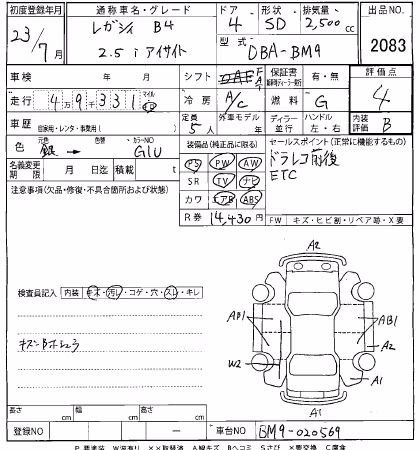 初度登録年月 通称車名・グレード ドア 形状 排気量 出品NO.
23/7月 レガシィ B4 4 SD 2,500cc 2083
2.5i アイサイト 型式 DBA-BM9
車検 年 月 シフト FAT 保証書 有・無 評価点
走行 49331 マイル km 冷房 A/C 燃料 G 4
車歴 自家用・レンタ・事業用( ) 定員 5人 外車モデル 年 ディーラー 並行 ハンドル 左・右 内装評価 B
色 元色 銀 色替 カラーNO G1U 装備品(純正品に限る) セールスポイント(正常に機能するもの)
名義変更期限 月 日迄 積載 t PS PW AW ドラレコ前後
注意事項(欠品・修復・不具合箇所および状態) SR TV ナビ ETC
カワ エアB ABS
R券 14,430円 FW キズ・ヒビ割・リペア跡・X要
A2
検査員記入 内装 キズ・汚レ・コゲ・穴・スレ・キレ
AB1 AB1
A2
W2
A1
A1
長さ cm 幅 cm 高さ cm
登録NO ー 車台NO BM9-020569
P要塗装 W波有り XX取替済 A線キズ Bヘコミ Sさび X要交換 C腐食